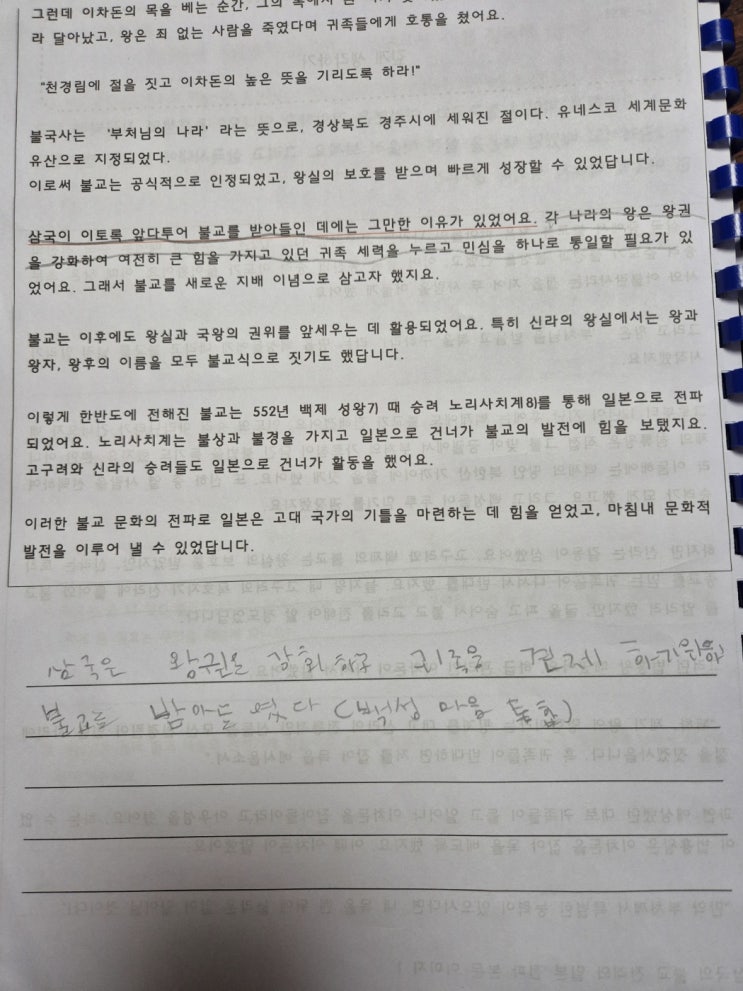 그런데 이차돈의 목을 베는 순간, 그의 목에서
라 달아났고, 왕은 죄 없는 사람을 죽였다며 귀족들에게 호통을 쳤어요.
"천경림에 절을 짓고 이차돈의 높은 뜻을 기리도록 하라!"
불국사는 '부처님의 나라' 라는 뜻으로, 경상북도 경주시에 세워진 절이다. 유네스코 세계문화
유산으로 지정되었다.
이로써 불교는 공식적으로 인정되었고, 왕실의 보호를 받으며 빠르게 성장할 수 있었답니다.
삼국이 이토록 앞다투어 불교를 받아들인 데에는 그만한 이유가 있었어요. 각 나라의 왕은 왕권
을 강화하여 여전히 큰 힘을 가지고 있던 귀족 세력을 누르고 민심을 하나로 통일할 필요가 있
었어요. 그래서 불교를 새로운 지배 이념으로 삼고자 했지요.
불교는 이후에도 왕실과 국왕의 권위를 앞세우는 데 활용되었어요. 특히 신라의 왕실에서는 왕과
왕자, 왕후의 이름을 모두 불교식으로 짓기도 했답니다.
이렇게 한반도에 전해진 불교는 552년 백제 성왕7) 때 승려 노리사치계8)를 통해 일본으로 전파
되었어요. 노리사치계는 불상과 불경을 가지고 일본으로 건너가 불교의 발전에 힘을 보탰지요.
고구려와 신라의 승려들도 일본으로 건너가 활동을 했어요.
이러한 불교 문화의 전파로 일본은 고대 국가의 기틀을 마련하는 데 힘을 얻었고, 마침내 문화적
발전을 이루어 낼 수 있었답니다.
삼국은 왕권을 강화하고 귀족을 견제 하기위해
불교를 받아들 였다 (백성 마음 통합)